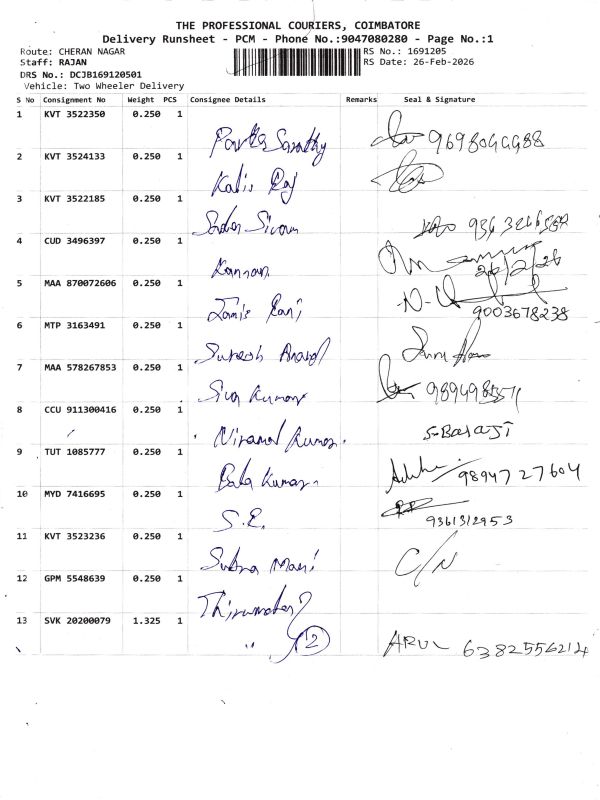 THE PROFESSIONAL COURIERS, COIMBATORE
Delivery Runsheet - PCM - Phone No.:9047080280 - Page No.:1
Route: CHERAN NAGAR
RS No.: 1691205
Staff: RAJAN
RS Date: 26-Feb-2026
DRS No.: DCJB169120501
Vehicle: Two Wheeler Delivery
S No Consignment No Weight PCS Consignee Details Remarks Seal & Signature
1 KVT 3522350 0.250 1
2 KVT 3524133 0.250 1
Kalis Raj
3 KVT 3522185 0.250 1
Sivam
4 CUD 3496397 0.250 1
Kannan 26/2/26
5 MAA 870072606 0.250 1
Rani 9003678238
6 MTP 3163491 0.250 1
Suresh Anand
7 MAA 578267853 0.250 1
Siva Kumar
8 CCU 911300416 0.250 1
Niramal Kumar. S-BalaJI
9 TUT 1085777 0.250 1
Bala Kumar 98947 27604
10 MYD 7416695 0.250 1
S.E. 9361312953
11 KVT 3523236 0.250 1
Subra Mani C/N
12 GPM 5548639 0.250 1
13 SVK 20200079 1.325 1
" 12 ARUL 6382556214